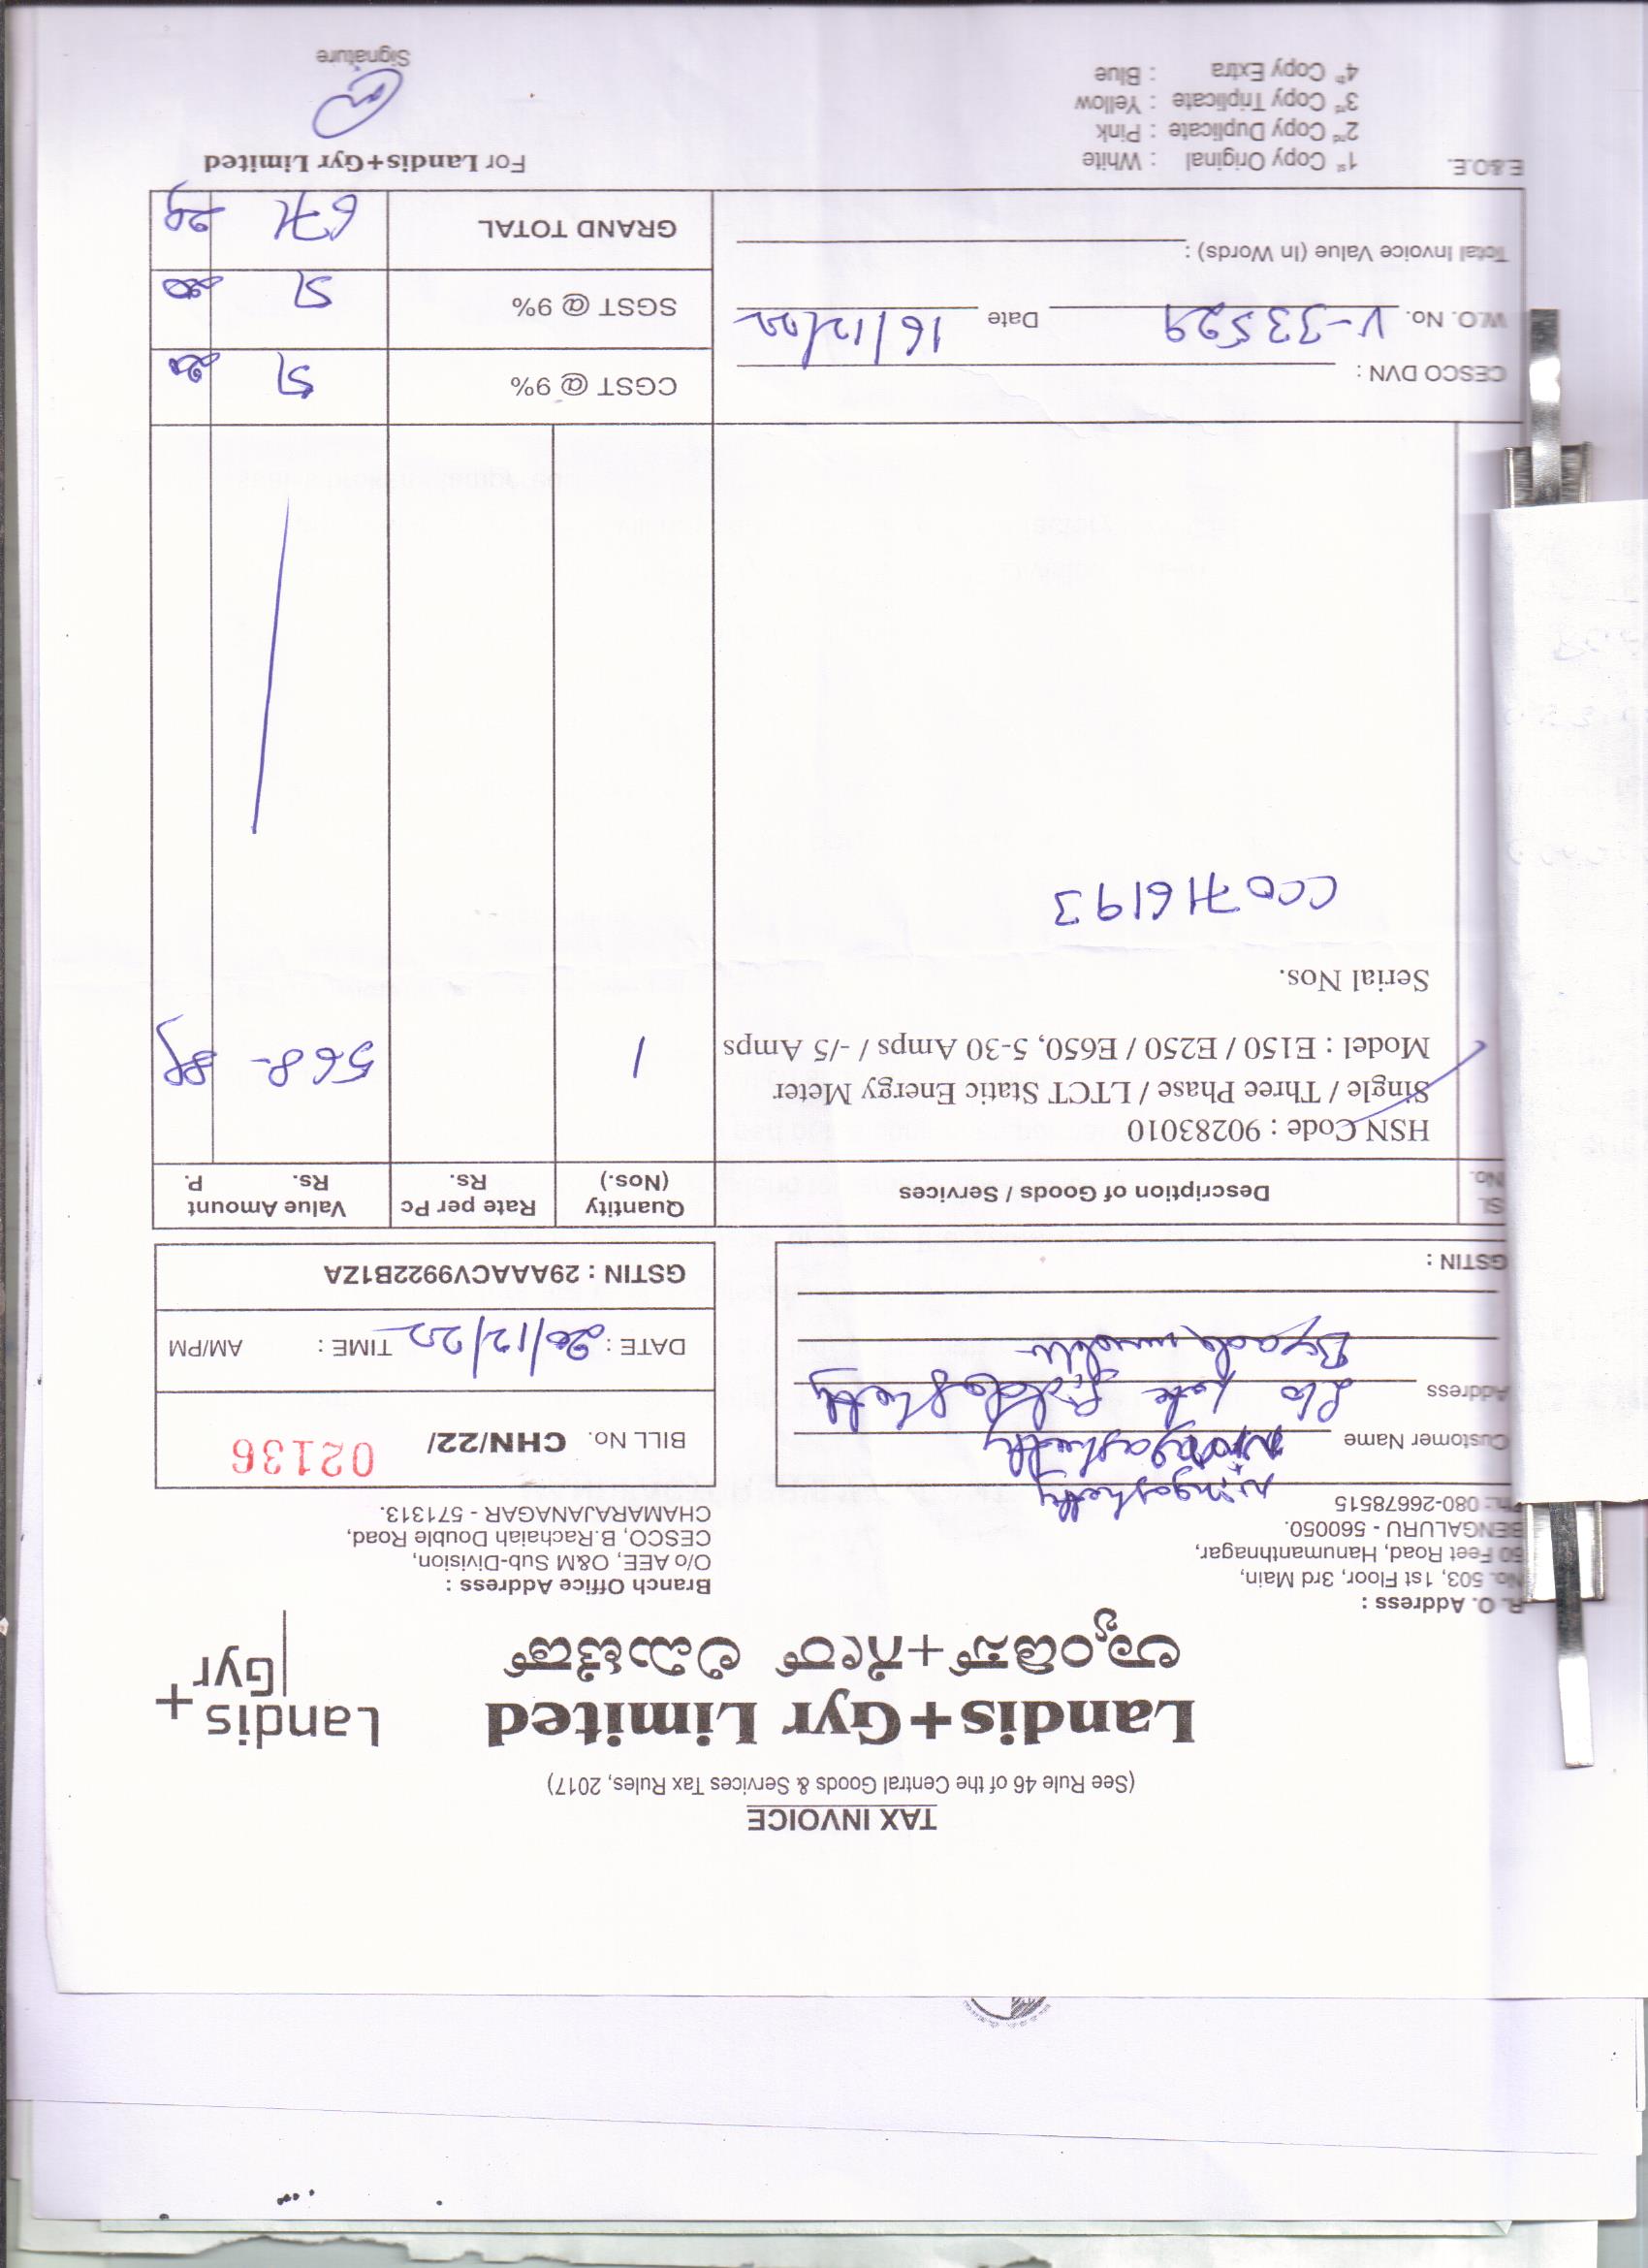 TAX INVOICE
(See Rule 46 of the Central Goods & Services Tax Rules, 2017)
Landis+Gyr Limited
ಲ್ಯಾಂಡಿಸ್+ಗೇರ್ ಲಿಮಿಟೆಡ್
Landis+
Gyr
R. O. Address :
No. 503, 1st Floor, 3rd Main,
50 Feet Road, Hanumanthnagar,
BENGALURU - 560050.
Ph.: 080-26678515
Branch Office Address :
O/o AEE, O&M Sub-Division,
CESCO, B.Rachaiah Double Road,
CHAMARAJANAGAR - 571313.
Ningashetty
Customer Name Ningashetty
Address S/o Late Siddashetty
Byadamudlu
GSTIN :
BILL No. CHN/22/ 02136
DATE : 20/12/22 TIME : AM/PM
GSTIN : 29AAACV9922B1ZA
SL No. Description of Goods / Services Quantity (Nos.) Rate per Pc Rs. Value Amount Rs. P.
HSN Code : 90283010
Single / Three Phase / LTCT Static Energy Meter
Model : E150 / E250 / E650, 5-30 Amps / -/5 Amps 1 568-
Serial Nos.
CC0716193
CESCO DVN :
W.O. No. V-33529 Date 16/12/22
Total Invoice Value (In Words) :
CGST @ 9% 51 20
SGST @ 9% 51 20
GRAND TOTAL 671 29
E.&O.E.
1st Copy Original : White
2nd Copy Duplicate : Pink
3rd Copy Triplicate : Yellow
4th Copy Extra : Blue
For Landis+Gyr Limited
Signature